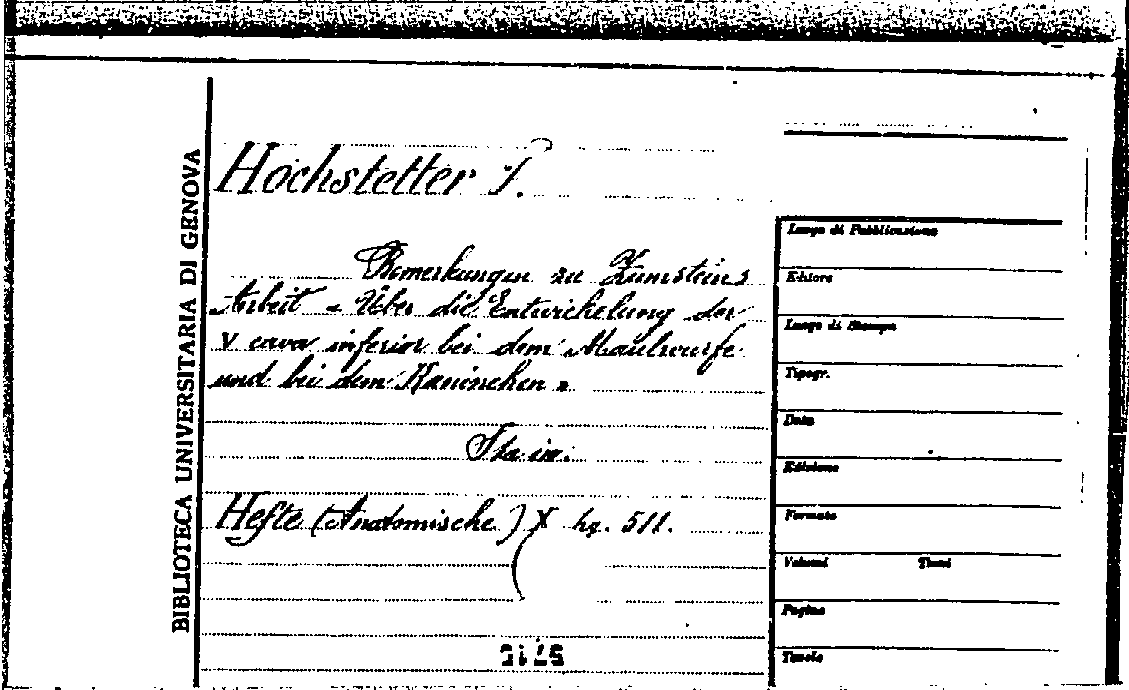 BIBLIOTECA UNIVERSITARIA DI GENOVA
Hochstetter
Bemerkungen zu Zumsteins
Arbeit - Über die Entwickelung der
V cava inferior bei dem Maulwurfe
und bei dem Kaninchen »
Sta in:
Hefte (Anatomische) X hg. 511.
Luogo di Pubblicazione
Editore
Luogo di Stampa
Tipogr.
Data
Edizione
Formato
Volumi Tomi
Pagine
Tavole